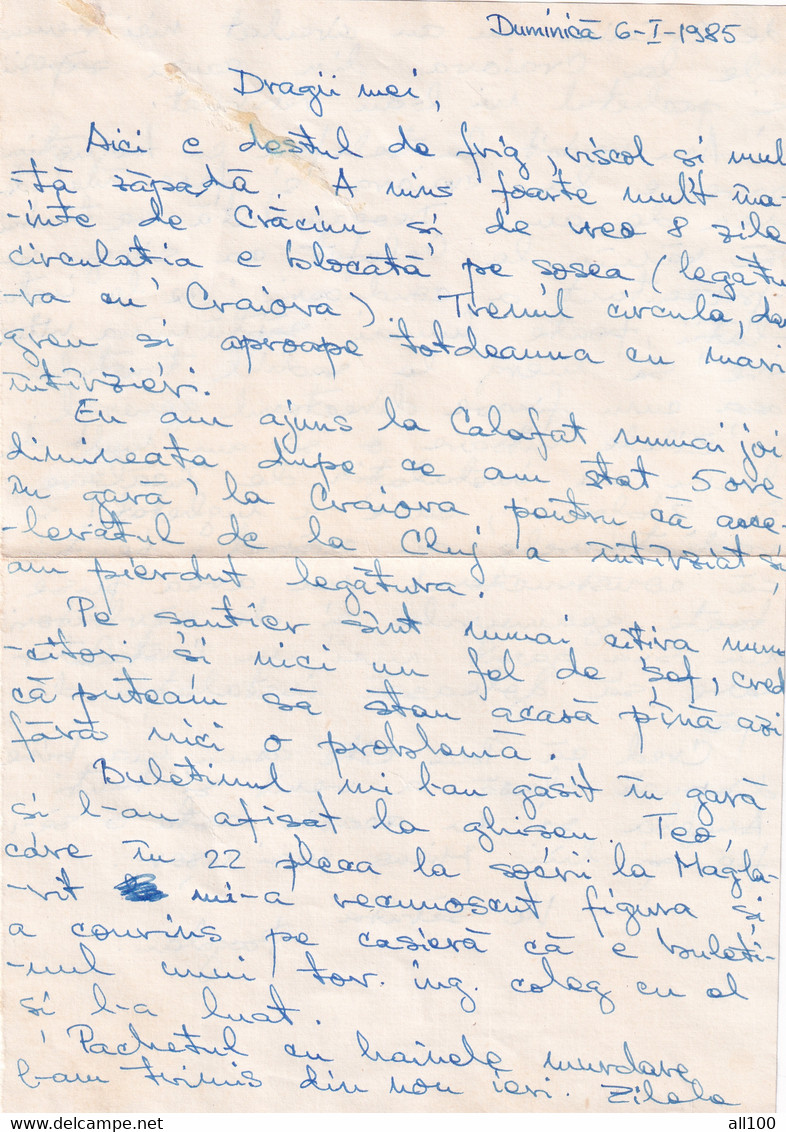 Duminică 6-I-1985
Dragii mei,
Aici e destul de frig, viscol și mul
tă zăpadă. A nins foarte mult îna-
-inte de Crăciun și de vreo 8 zile
circulația e blocată pe șosea (legătu
-ra cu Craiova). Trenul circulă, dar
greu și aproape totdeauna cu mari
întîrzieri.
Eu am ajuns la Calafat numai joi
dimineața dupe ce am stat 5 ore
în gară la Craiova pentru că acce-
-leratul de la Cluj a întîrziat și
am pierdut legătura.
Pe șantier sînt numai cîtiva munc
-citori și nici un fel de șef, cred
că puteam sa stau acasă pînă azi
fără nici o problemă.
Buletinul mi l-au găsit în gară
și l-au afișat la ghișeu. Teo,
care în 22 pleca la socri la Magla-
-vit mi-a recunoscut figura și
a convins pe casieră că e buleti-
-nul unui tov. ing. coleg cu el
și l-a luat.
Pachetul cu hainele murdare
l-am trimis din nou ieri. Zilele
all100